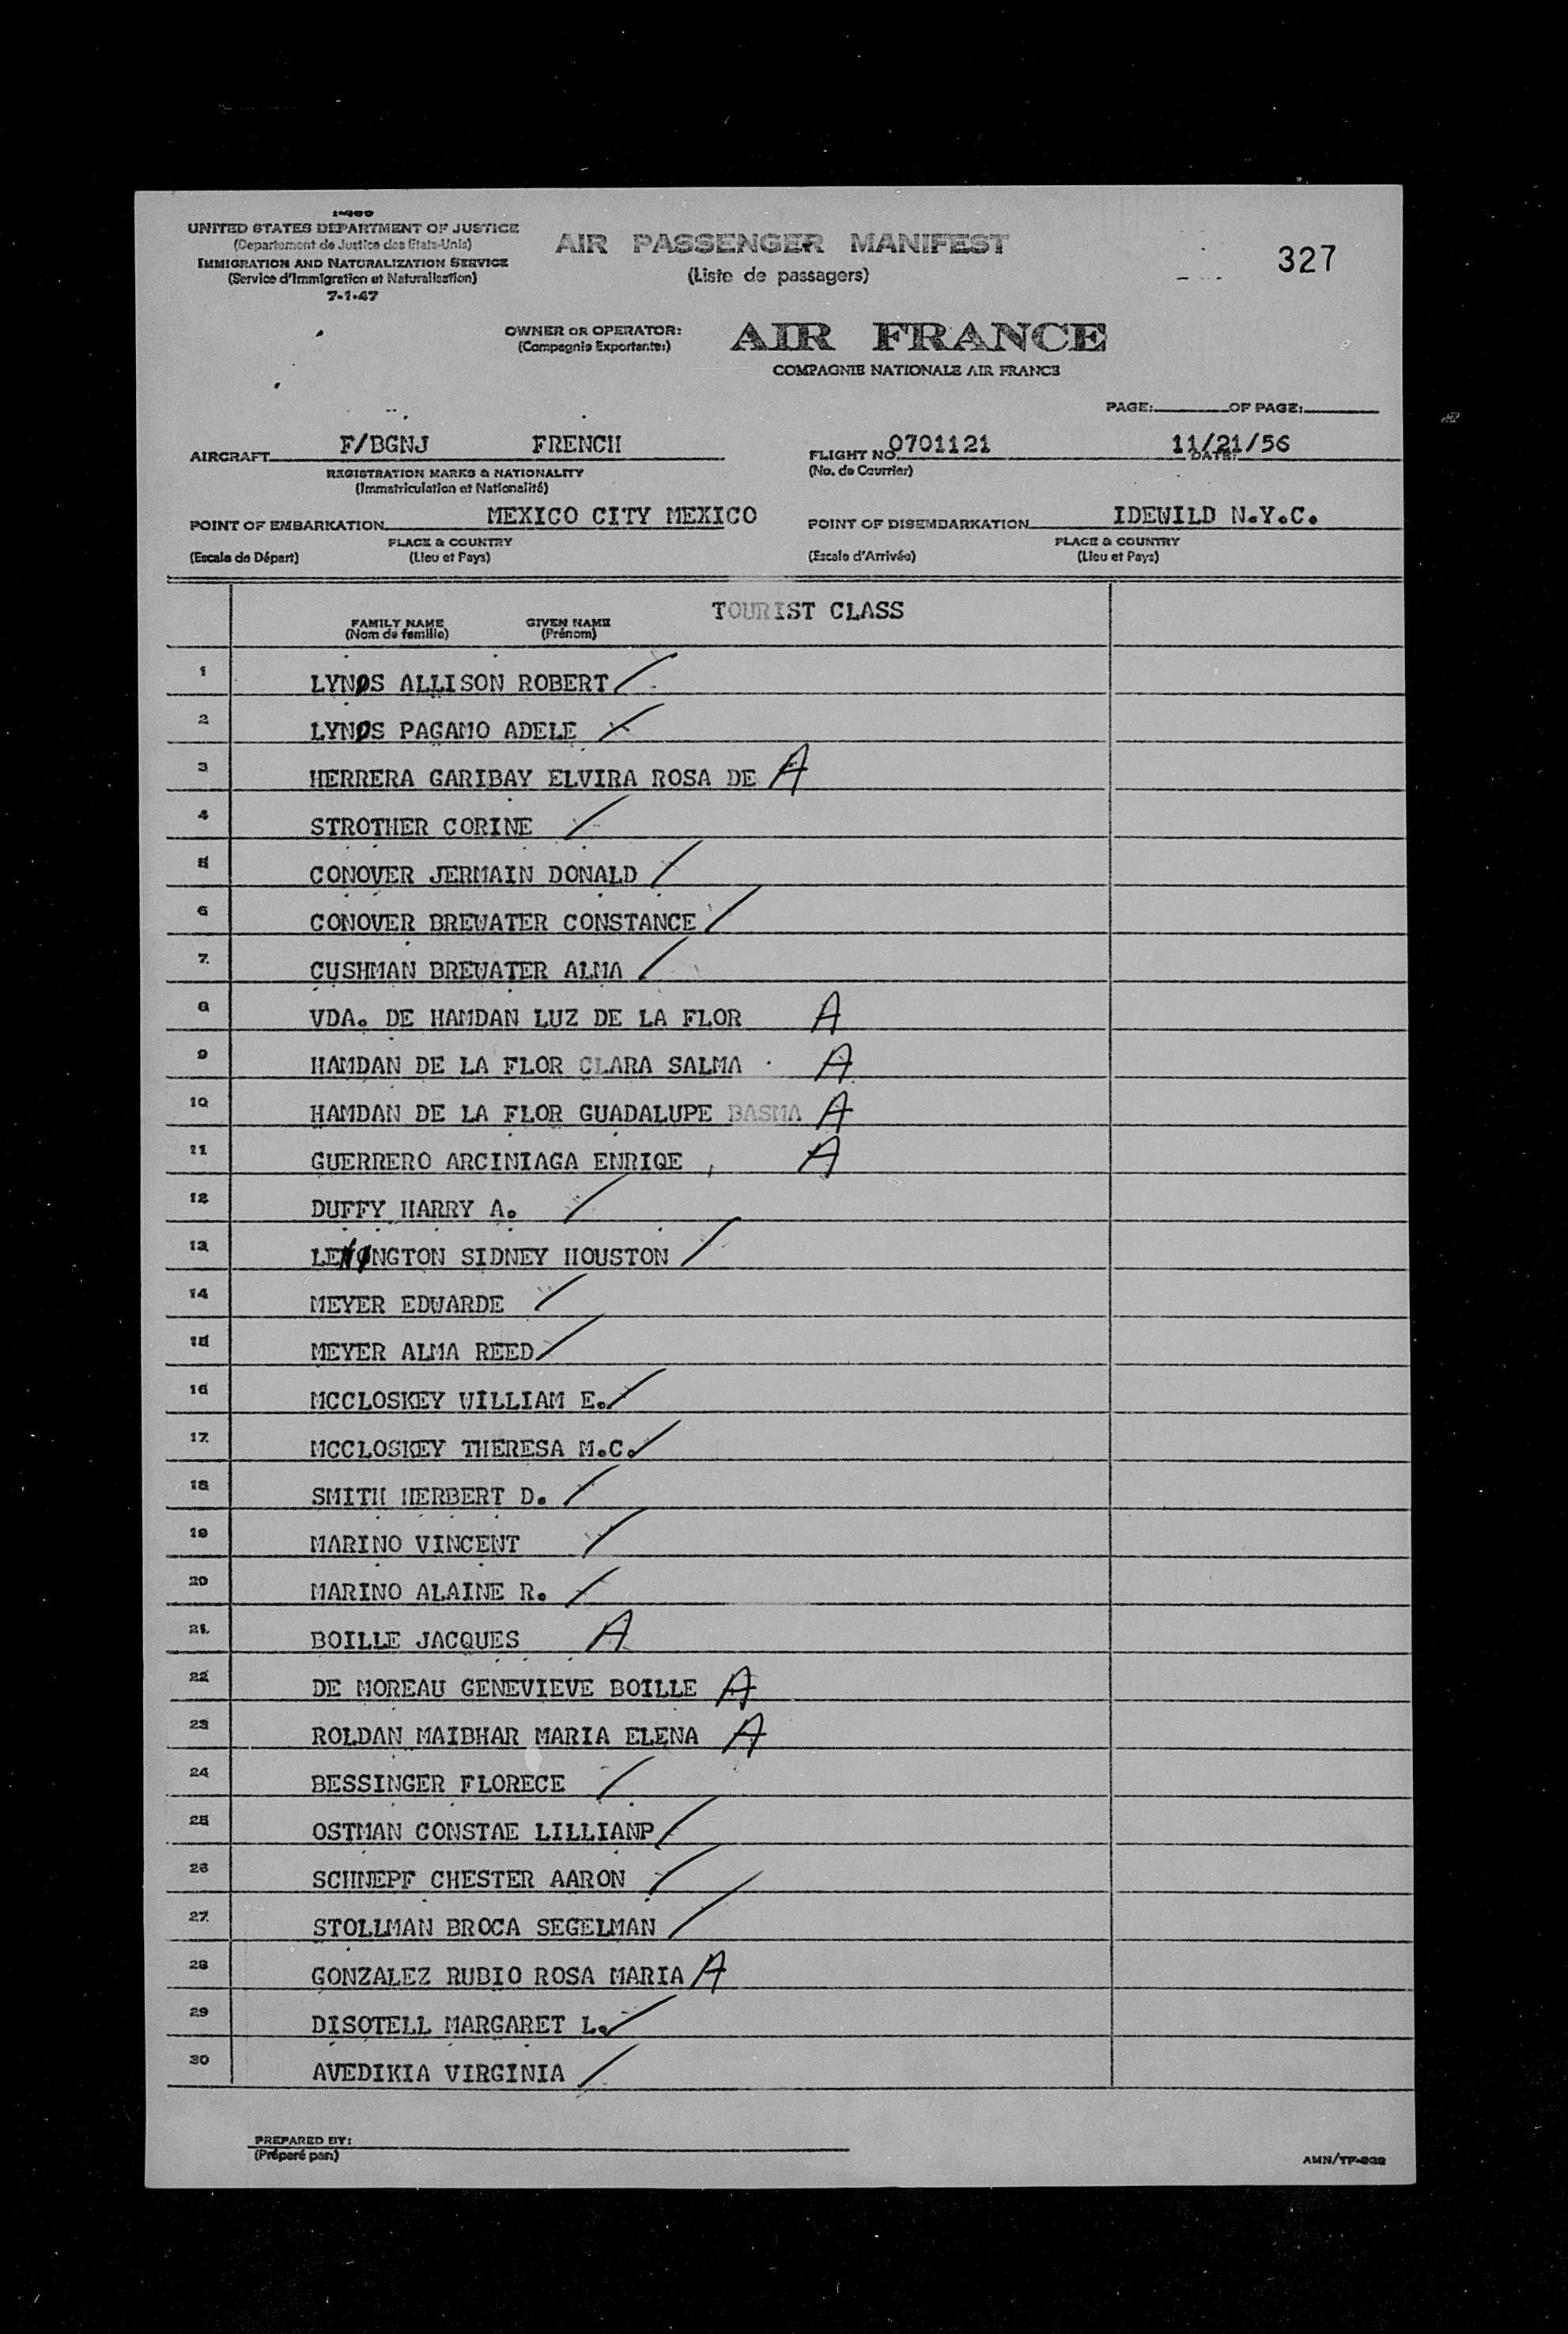 I-466
UNITED STATES DEPARTMENT OF JUSTICE
(Departement de Justice des Etats-Unis)
IMMIGRATION AND NATURALIZATION SERVICE
(Service d'Immigration et Naturalisation)
7-1-47
AIR PASSENGER MANIFEST
(Liste de passagers)
327
OWNER OR OPERATOR: AIR FRANCE
(Compagnie Exportante:)
COMPAGNIE NATIONALE AIR FRANCE
PAGE: OF PAGE:
AIRCRAFT F/BGNJ FRENCH FLIGHT NO. 0701121 DATE: 11/21/56
REGISTRATION MARKS & NATIONALITY (No. de Courrier)
(Immatriculation et Nationalité)
POINT OF EMBARKATION MEXICO CITY MEXICO POINT OF DISEMBARKATION IDEWILD N.Y.C.
PLACE & COUNTRY PLACE & COUNTRY
(Escale de Départ) (Lieu et Pays) (Escale d'Arrivée) (Lieu et Pays)
TOURIST CLASS
FAMILY NAME GIVEN NAME
(Nom de famille) (Prénom)
1 LYNOS ALLISON ROBERT /
2 LYNOS PAGAMO ADELE /
3 HERRERA GARIBAY ELVIRA ROSA DE A
4 STROTHER CORINE /
5 CONOVER JERMAIN DONALD /
6 CONOVER BREWATER CONSTANCE /
7 CUSHMAN BREWATER ALMA /
8 VDA. DE HAMDAN LUZ DE LA FLOR A
9 HAMDAN DE LA FLOR CLARA SALMA A
10 HAMDAN DE LA FLOR GUADALUPE BASMA A
11 GUERRERO ARCINIAGA ENRIQE , A
12 DUFFY HARRY A. /
13 SIDNEY HOUSTON /
14 MEYER EDWARDE /
15 MEYER ALMA REED /
16 MCCLOSKEY WILLIAM E. /
17 MCCLOSKEY THERESA M.C. /
18 SMITH HERBERT D. /
19 MARINO VINCENT /
20 MARINO ALAINE R. /
21 BOILLE JACQUES A
22 DE MOREAU GENEVIEVE BOILLE A
23 ROLDAN MAIBHAR MARIA ELENA A
24 BESSINGER FLORECE /
25 OSTMAN CONSTAE LILLIANP /
26 SCHNEPF CHESTER AARON /
27 STOLLMAN BROCA SEGELMAN /
28 GONZALEZ RUBIO ROSA MARIA A
29 DISOTELL MARGARET L. /
30 AVEDIKIA VIRGINIA /
PREPARED BY:
(Préparé par:)